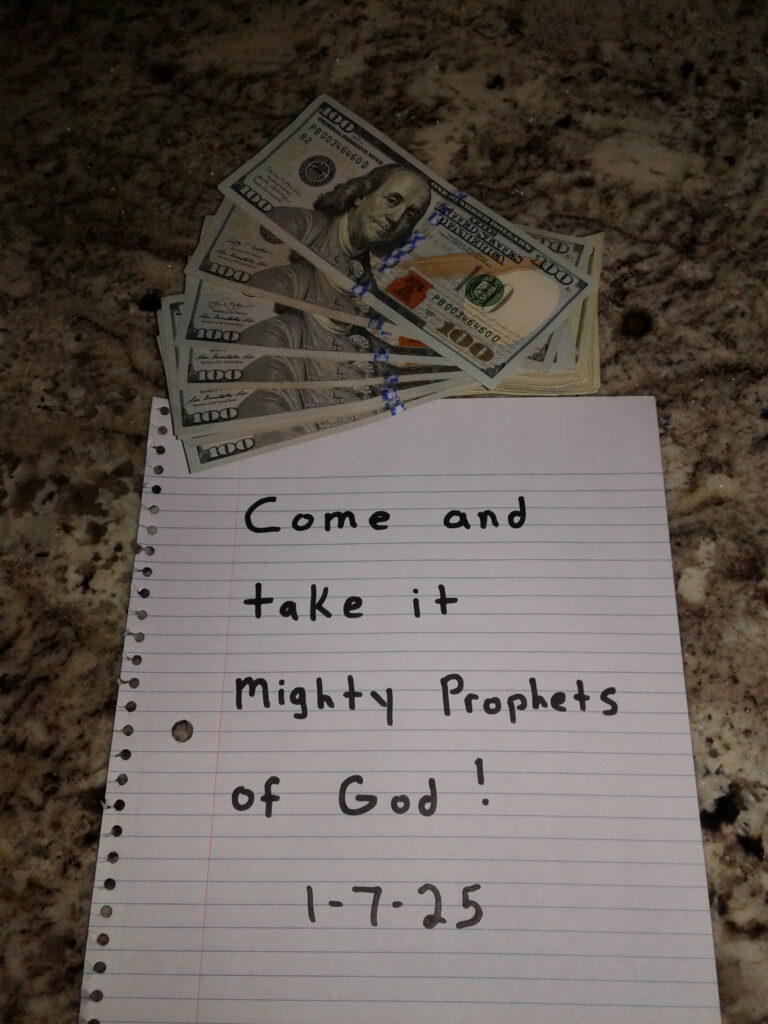 100
FEDERAL RESERVE NOTE
PB00346460D
B2
100
THE UNITED STATES
OF AMERICA
100
PB00346460D
100
100
100
100
100
100
Come and
take it
Mighty Prophets
of God!
1-7-25